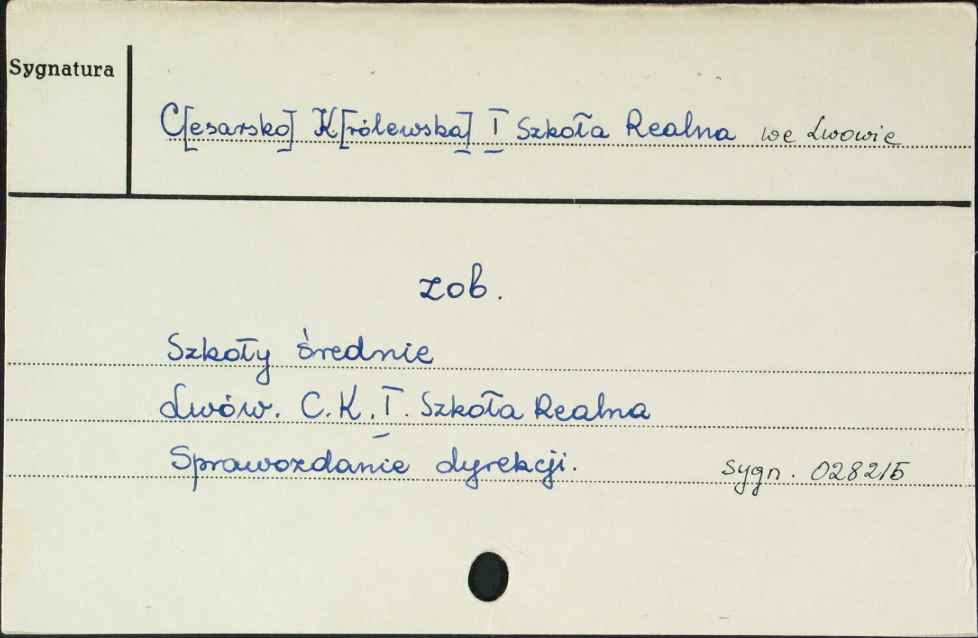 Sygnatura
C[esarsko] K[rólewska] I Szkoła Realna we Lwowie
zob.
Szkoły średnie
Lwów. C.K.I. Szkoła Realna
Sprawozdanie dyrekcji. sygn. 0282/5